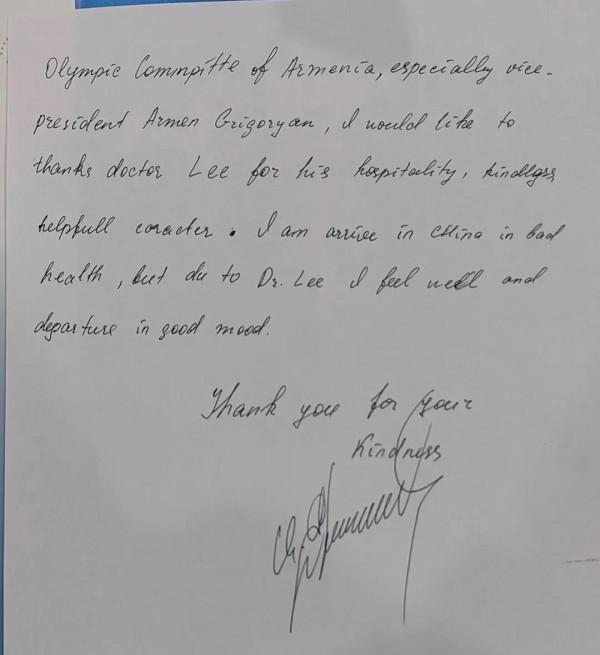 Olympic Committe of Armenia, especially vice-
president Armen Grigoryan, I would like to
thanks doctor Lee for his hospitality, kindlyss
helpfull coracter. I am arrive in China in bad
health, but du to Dr. Lee I feel well and
departure in good mood.
Thank you for your
kindness